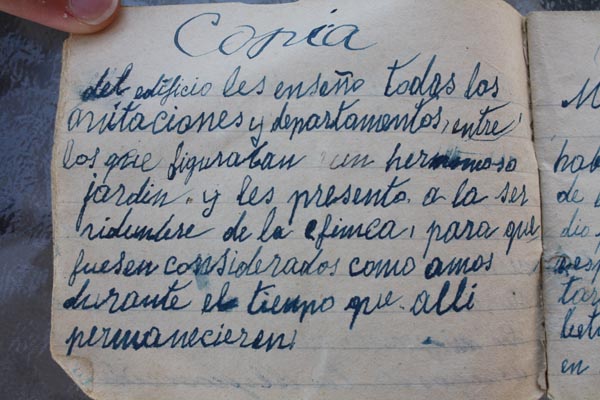 Copia
del edificio les enseño todas las
avitaciones y departamentos, entre
los que figuraban un hermoso
jardin y les presento a la ser
vidumbre de la finca, para que
fuesen considerados como amos
durante el tiempo que alli
permanecieren
M
hab
de
dio
resp
tar
en